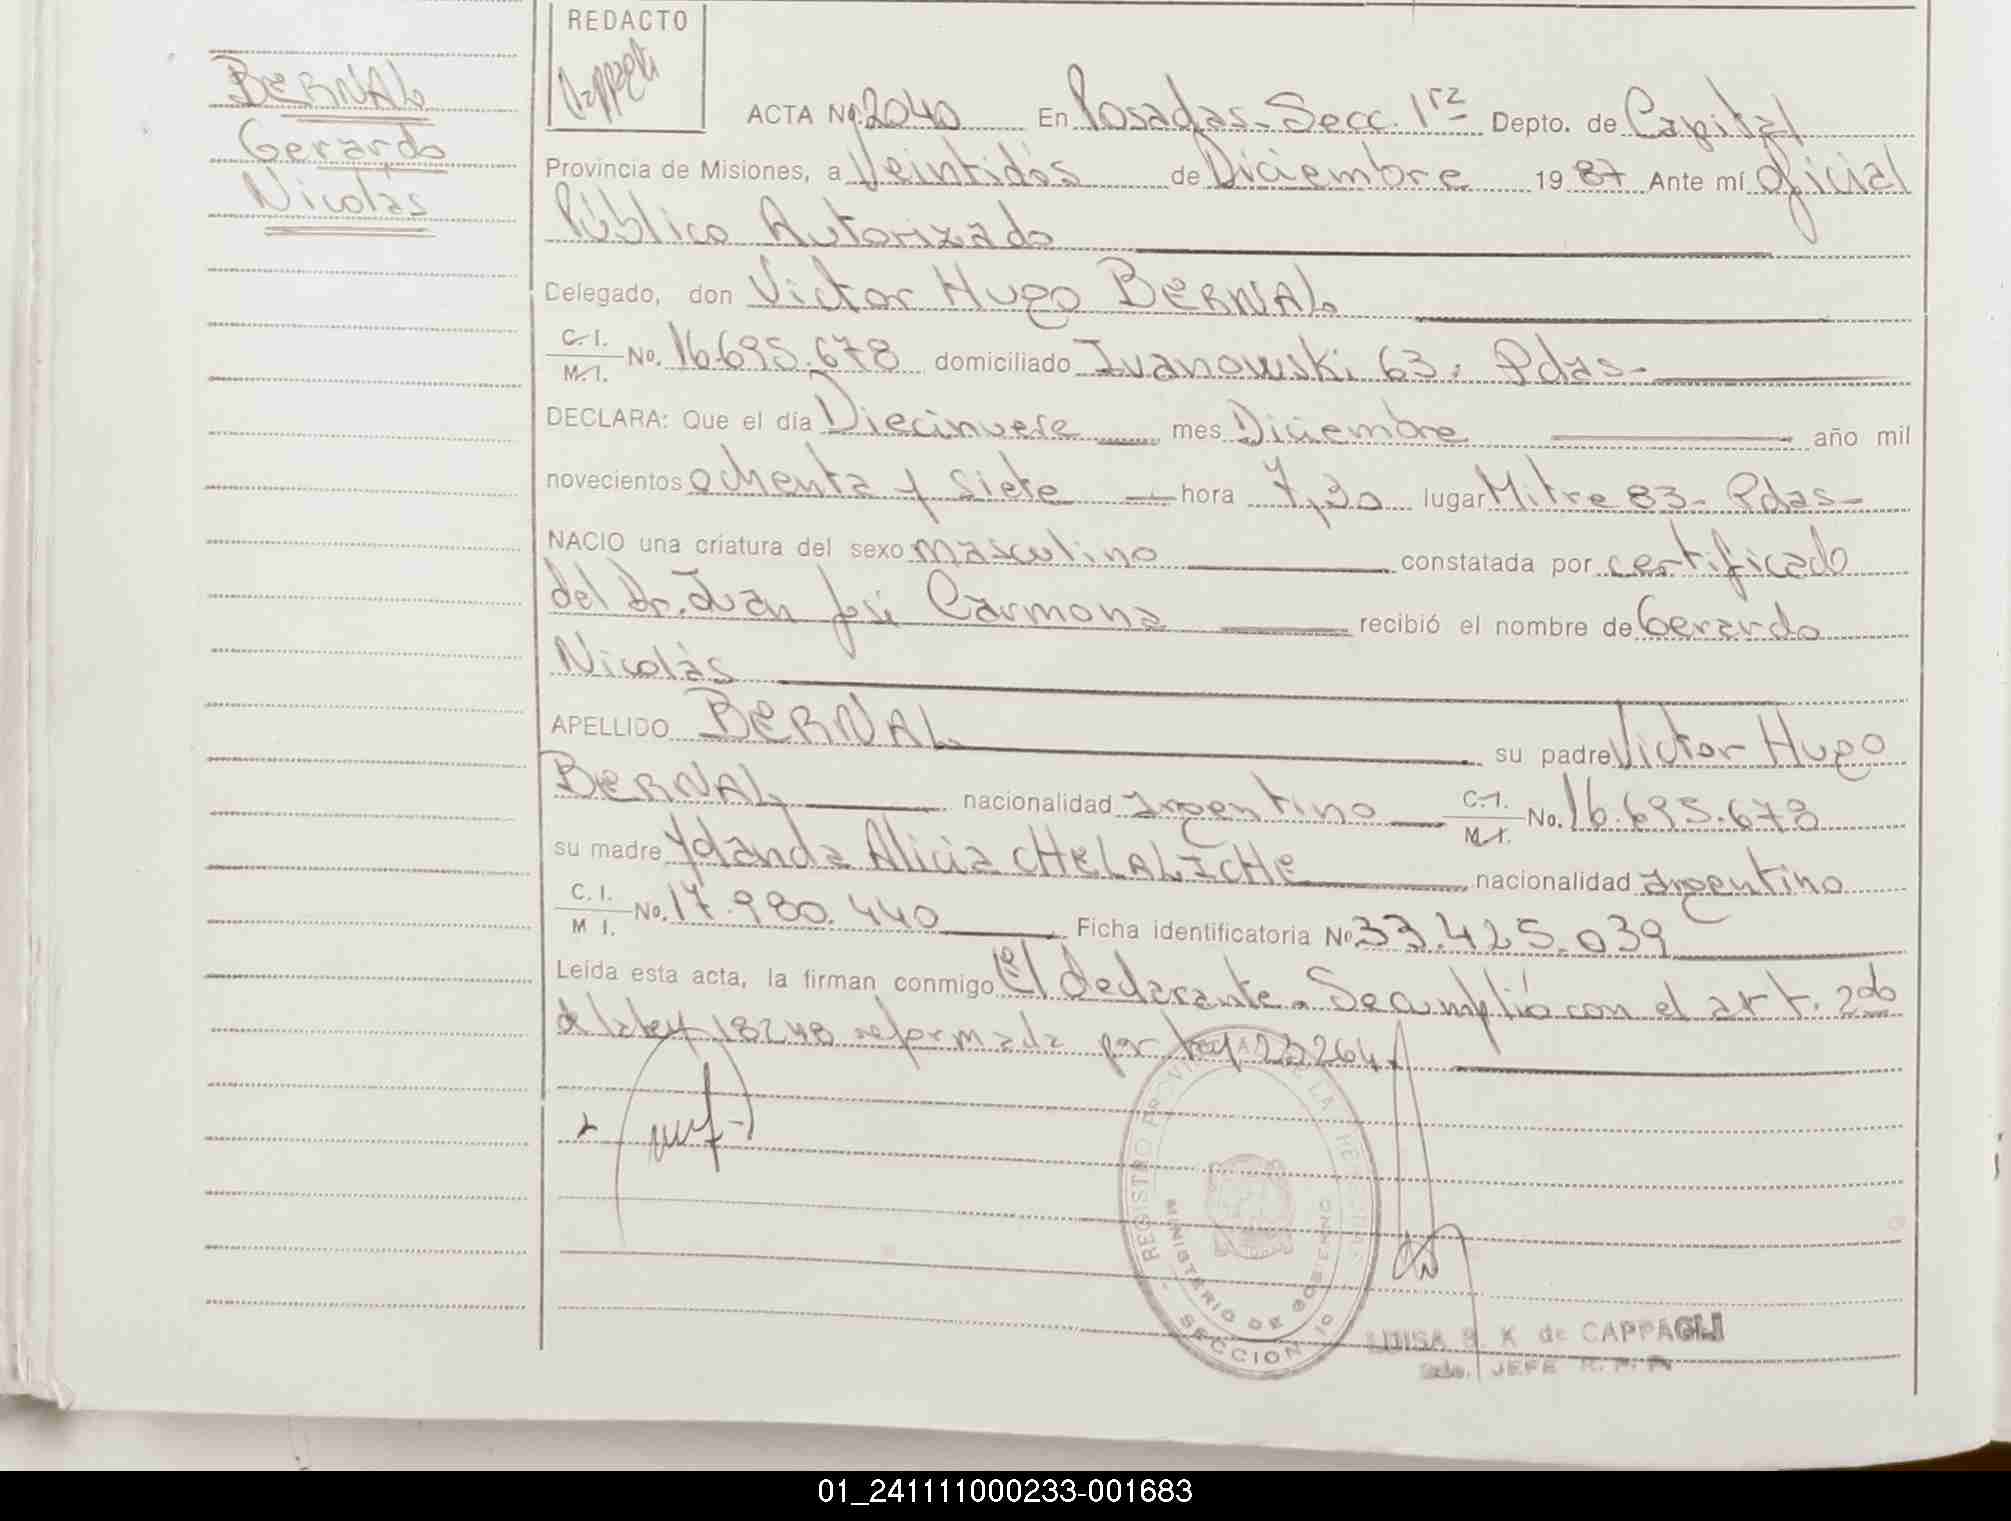 REDACTO
Cappagli
BERNAL
Gerardo
Nicolás
ACTA No. 2040 En Posadas-Secc. 1ra Depto. de Capital
Provincia de Misiones, a Veintidós de Diciembre 1987 Ante mí Oficial
Público Autorizado
Delegado, don Victor Hugo BERNAL
C.I.
M.I. No. 16.695.678 domiciliado Ivanowski 63. Pdas-
DECLARA: Que el día Diecinueve mes Diciembre año mil
novecientos ochenta y siete hora 7,30 lugar Mitre 83- Pdas-
NACIO una criatura del sexo masculino constatada por certificado
del Dr. Juan José Carmona recibió el nombre de Gerardo
Nicolás
APELLIDO BERNAL su padre Victor Hugo
BERNAL nacionalidad argentino C.I. M.I. No. 16.695.678
su madre Yolanda Alicia CHELALICHE nacionalidad argentino
C. I.
M I. No. 17.980.440 Ficha identificatoria No 33.425.039
Leída esta acta, la firman conmigo el declarante. Se cumplió con el art. 2do
de la ley 18248 reformada por ley 23264.
REGISTRO PROVINCIAL DE LA
MINISTERIO DE GOBIERNO
SECCION 10
LUISA S. K de CAPPAGLI
JEFE R. P. P.
01_241111000233-001683